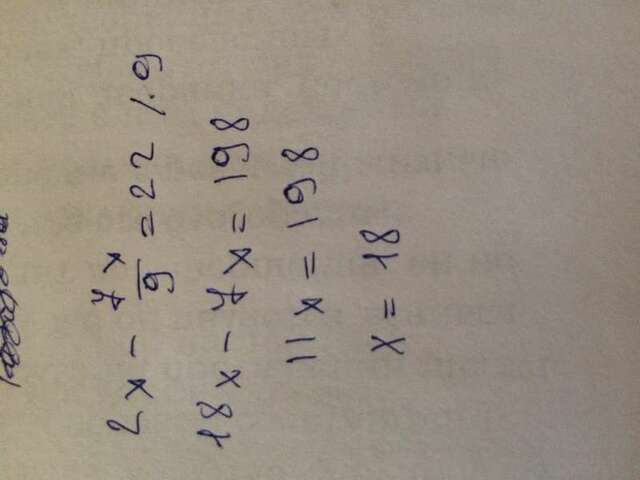 2x - 7x/9 = 22 /·9
18x - 7x = 198
11x = 198
x = 18